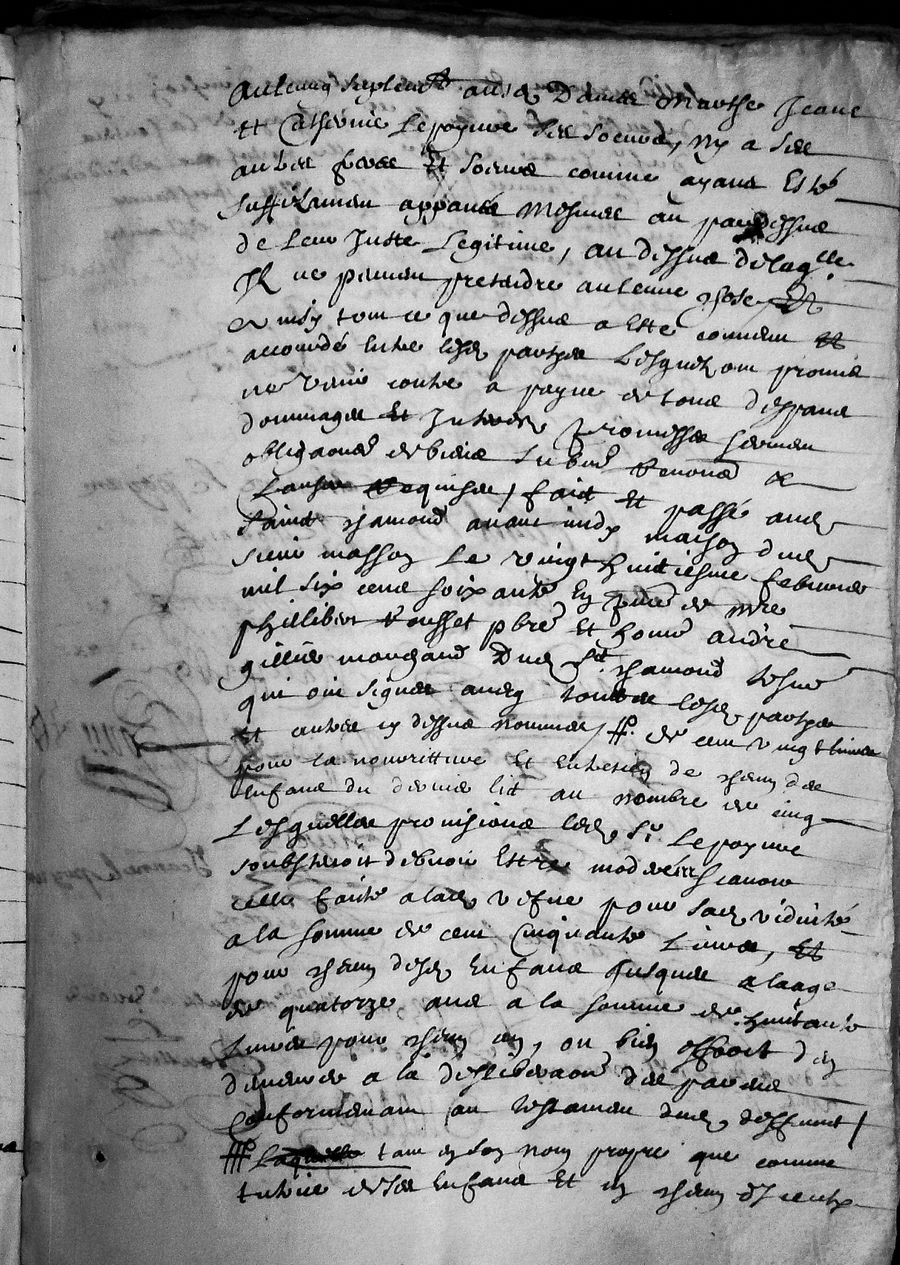 Aulcung suplem.t ausd Dames Marthe Jeane
et Catherine Lepayuve ses soeurs, ny a ses
autres freres et soeurs comme ayant esté
suffizamen appanés mesmes au par dessus
de leur juste legitime, au dessus de laqlle
Ils ne peuvent pretendre aulcune chose, et
ainsy tout ce que dessus a esté convenu et
accordé entre lesd parties lesquels ont promis
ne venir contre a payne de tous despans
dommages et interests promesses serment
obligaons de biens submis renonas &
clauses requises, fait et passé aud
Saint Chamond avant midy maison dud
sieur Masson le vingt huictiesme febvrier
mil six cens soixante en pnce de Mre
Phillibert Rousset pbre et honnes André
Gillier marchand dud St Chamond tesms
qui ont signés avecq toutes lesd parties
et autres cy dessus nommes, de cent vingt livres
pour la nourritture et entretien de chun des
enfans du dernier lit au nombre de cinq
Lesquelles provisions led Sr Lepayuve
soubstenoit debvoir estre moderées scavoir
celle faite a lad vefve pour sad viduité
a la somme de cent cinquante livres, et
pour chun desd enfans jusques a laage
de quatorze ans a la somme de huitante
livres pour chun an, ou bien offroit d'en
demeurer a la desliberaon des parens
conformement au testament dud deffunt
Laquelle tant en son nom propre que comme
tutrice de ses enfans et en chun d'iceux